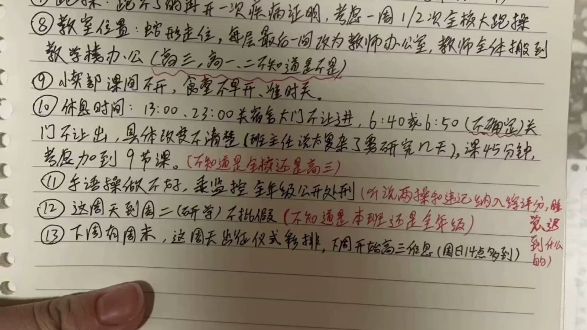 跑操：跑不了的再开一次疾病证明，考虑一周1/2次全校大跑操
⑧教室位置：蛇形走位，每层最后一间改为教师办公室，教师全体搬到
教学楼办公（高三，高一、二不知道是不是）
⑨小卖部课间不开，食堂不早开、准时关。
⑩休息时间：13:00、23:00关宿舍大门不让进，6:40或6:50（不确定）关
门不让出，具体改变不清楚（班主任说太复杂了要研究几天），课45分钟，
考虑加到9节课。（不知道是全校还是高三）
⑪手语操做不好，乘监控全年级公开处刑（听说两操和速记纳入综评分，
⑫这周天到周二（研学）不批假（不知道是本班还是全年级）
⑬下周有周末，这周天出征仪式彩排，下周开始高三作息（周日14点多到）
迟
到什么
的）